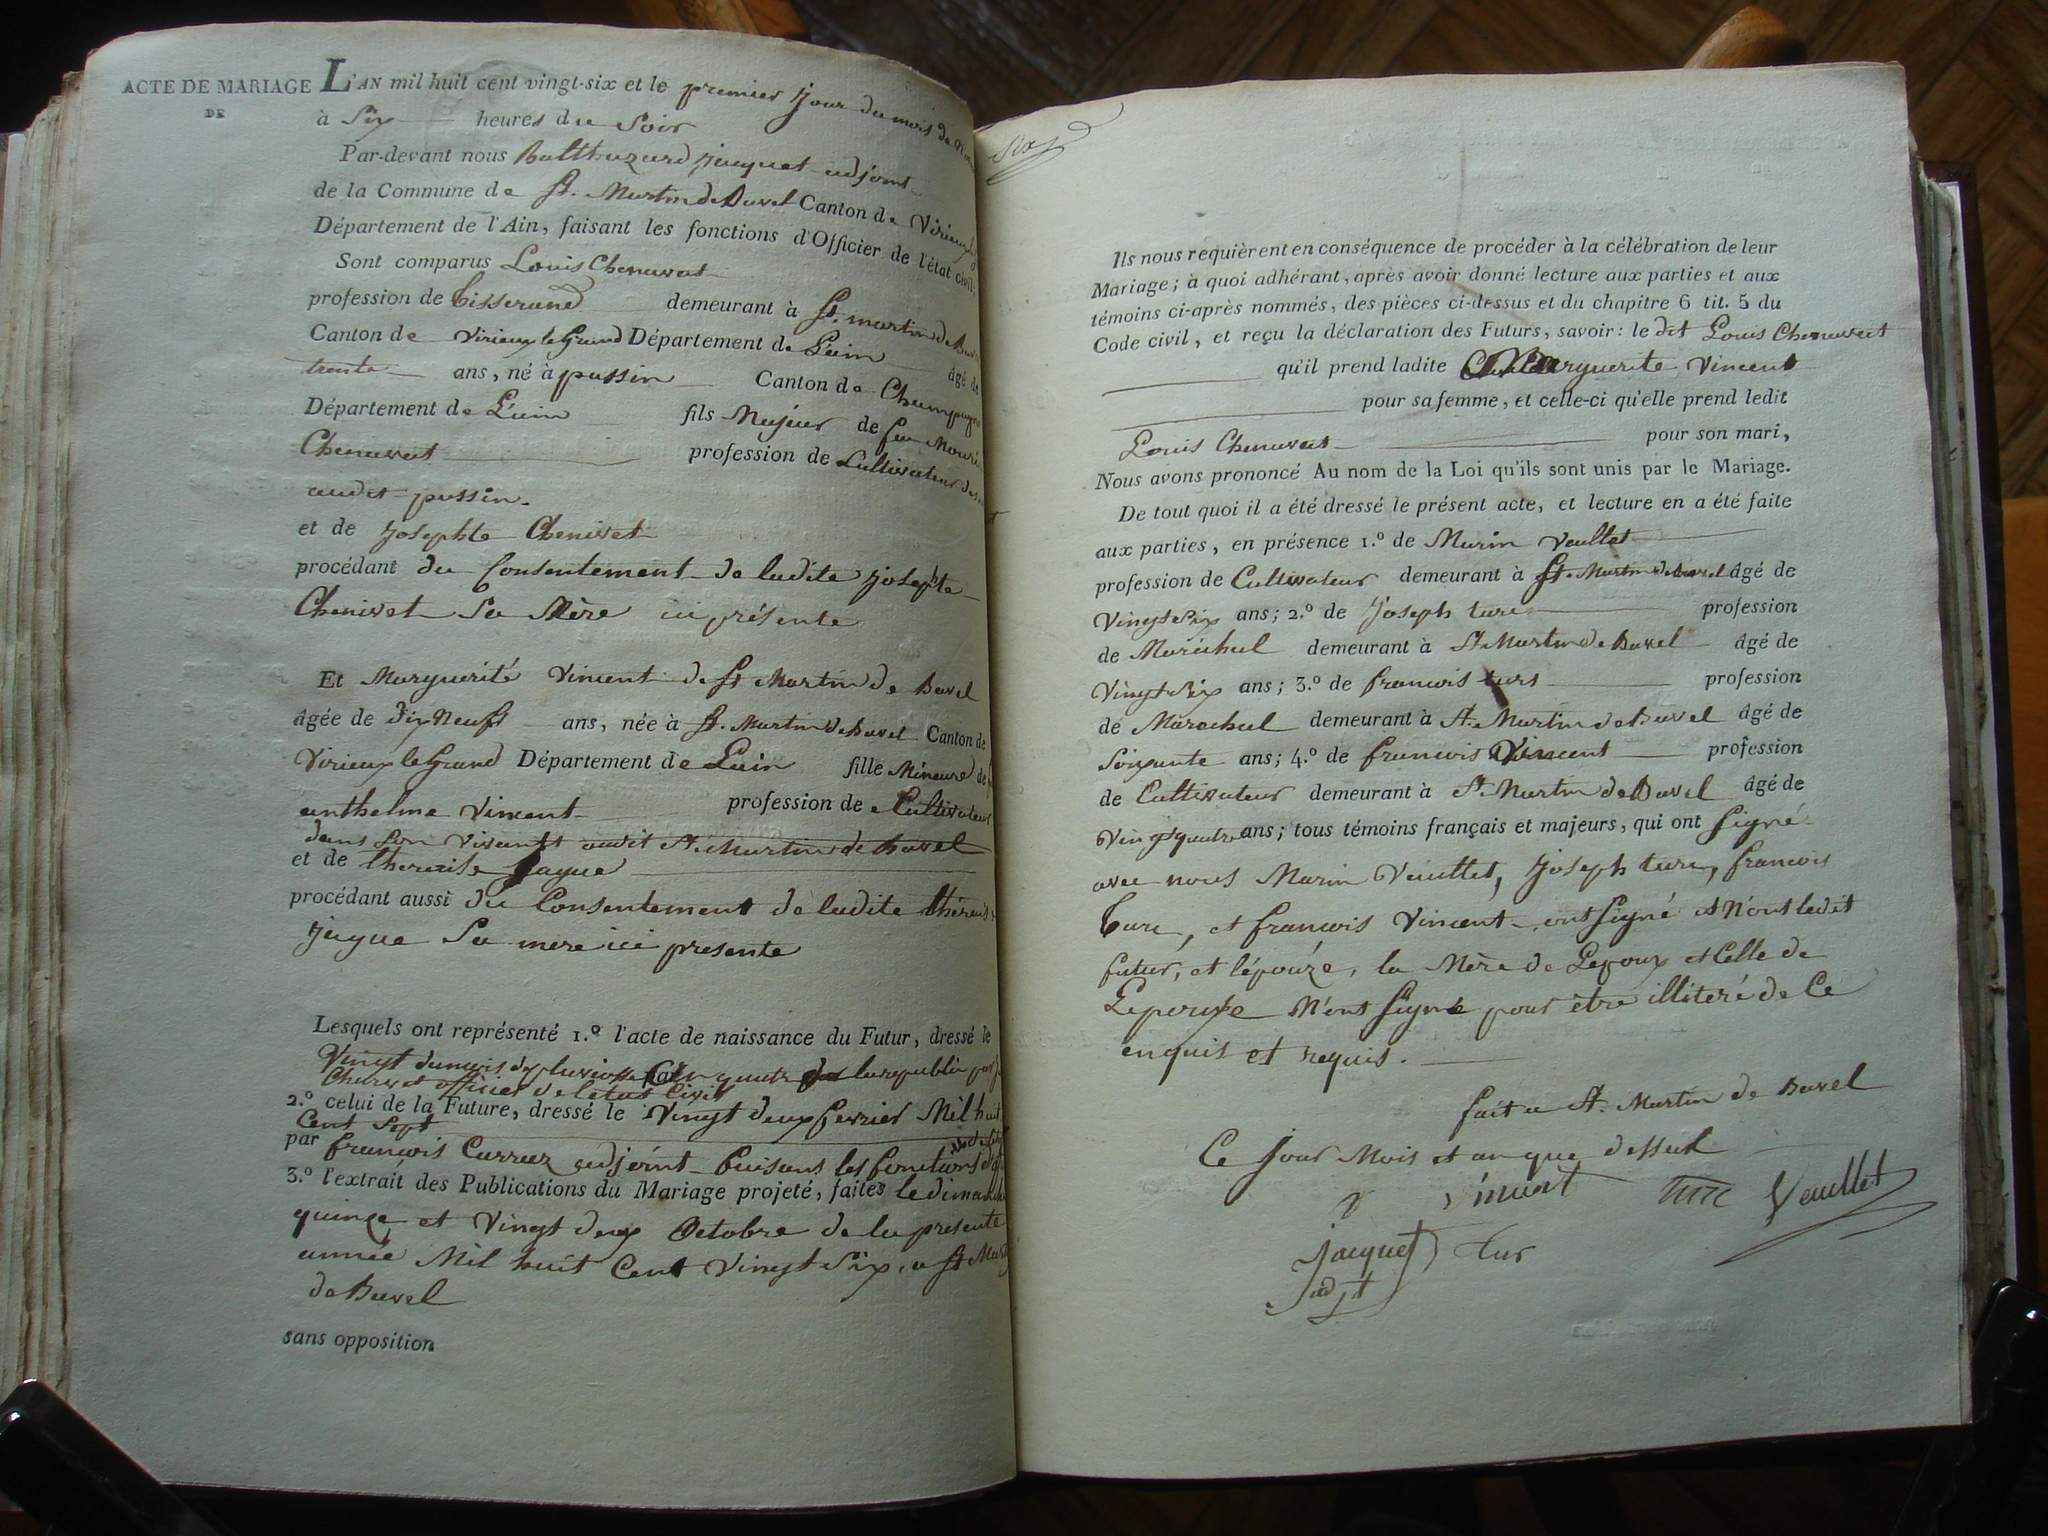 ACTE DE MARIAGE
DE
L'AN mil huit cent vingt-six et le premier jour du mois de
à Six heures du Soir
Par-devant nous Balthazard jacquet adjoint
de la Commune de St. Martin de Bavel Canton de Virieux
Département de l'Ain, faisant les fonctions d'Officier de l'état civil.
Sont comparus Louis Chenavat
profession de tisserand demeurant à St. martin de
Canton de Virieux le Grand Département de L'ain âgé de
trente ans, né à passin Canton de Champagne
Département de L'ain fils Majeur de feu
Chenavat profession de Cultivateur
audit passin.
et de Josephte Chenivet
procédant du Consentement de ladite Josephte
Chenivet Sa Mère ici présente
Et Marguerite Vincent de St Martin de Bavel
âgée de Dix Neuf ans, née à St. Martin de Bavel Canton de
Virieux le Grand Département de Lain fille Mineure de
anthelme Vincent profession de Cultivateur
dans Son vivant audit St. Martin de Bavel
et de theraise Jaque
procédant aussi du Consentement de ladite
Jaque Sa mere ici presente
Lesquels ont représenté 1.º l'acte de naissance du Futur, dressé le
Vingt du mois de pluviose an quatre la republiq par
officier de letat Civil
2.º celui de la Future, dressé le Vingt deux fevrier Mil huit
Cent Sept
par francois Carrez adjoint faisant les fonctions
3.º l'extrait des Publications du Mariage projeté, faites le dimanche
quinze et Vingt deux Octobre de la presente
année Mil huit Cent Vingt Six, a St
de Bavel
sans opposition
Six
Ils nous requièrent en conséquence de procéder à la célébration de leur
Mariage; à quoi adhérant, après avoir donné lecture aux parties et aux
témoins ci-après nommés, des pièces ci-dessus et du chapitre 6 tit. 5 du
Code civil, et reçu la déclaration des Futurs, savoir: le dit Louis Chenavat
qu'il prend ladite Marguerite Vincent
pour sa femme, et celle-ci qu'elle prend ledit
Louis Chenavat pour son mari,
Nous avons prononcé Au nom de la Loi qu'ils sont unis par le Mariage.
De tout quoi il a été dressé le présent acte, et lecture en a été faite
aux parties, en présence 1.º de Marin Veullet
profession de Cultivateur demeurant à St. Martin de Bavel âgé de
Vingt Six ans; 2.º de Joseph turc profession
de Maréchal demeurant à St Martin de Bavel âgé de
Vingt Six ans; 3.º de francois turc profession
de Marechal demeurant à St. Martin de Bavel âgé de
Soixante ans; 4.º de francois Vincent profession
de Cultivateur demeurant à St. Martin de Bavel âgé de
Vingt quatre ans; tous témoins français et majeurs, qui ont Signé
avec nous Marin Veuillet, Joseph turc, francois
turc, et francois Vincent ont Signé et N'ont ledit
futur, et l'épouze, la Mère de Lepoux et Celle de
Lepouxe N'ont Signé pour être illiteré de Ce
enquis et requis.
fait a St. Martin de Bavel
Ce Jour Mois et an que dessus
turc Veullet
Jacquet tur
adjt